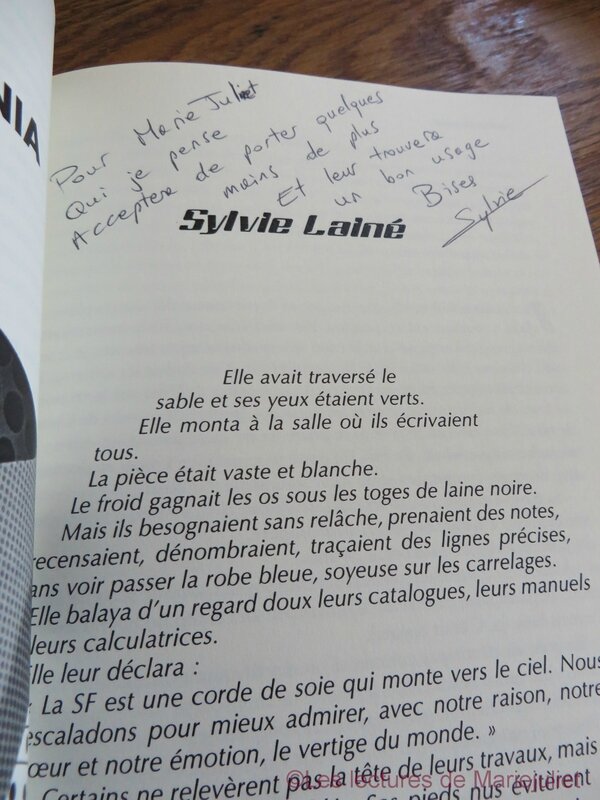 NIA
Pour Marie Juliet
Qui je pense
Acceptera de porter quelques
mains de plus
Et leur trouvera
un bon usage
Bises
Sylvie
Sylvie Lainé
Elle avait traversé le
sable et ses yeux étaient verts.
Elle monta à la salle où ils écrivaient
tous.
La pièce était vaste et blanche.
Le froid gagnait les os sous les toges de laine noire.
Mais ils besognaient sans relâche, prenaient des notes,
recensaient, dénombraient, traçaient des lignes précises,
ans voir passer la robe bleue, soyeuse sur les carrelages.
Elle balaya d'un regard doux leurs catalogues, leurs manuels
leurs calculatrices.
Elle leur déclara :
La SF est une corde de soie qui monte vers le ciel. Nous
escaladons pour mieux admirer, avec notre raison, notre
œur et notre émotion, le vertige du monde. »
Certains ne relevèrent pas la tête de leurs travaux, mais
pieds nus évitèrent
©Les lectures de Mariejuliet